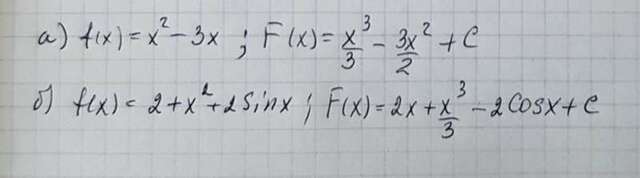 а) f(x) = x² - 3x ; F(x) = x³/3 - 3x²/2 + C
б) f(x) = 2 + x² + 2 Sinx ; F(x) = 2x + x³/3 - 2 Cosx + C